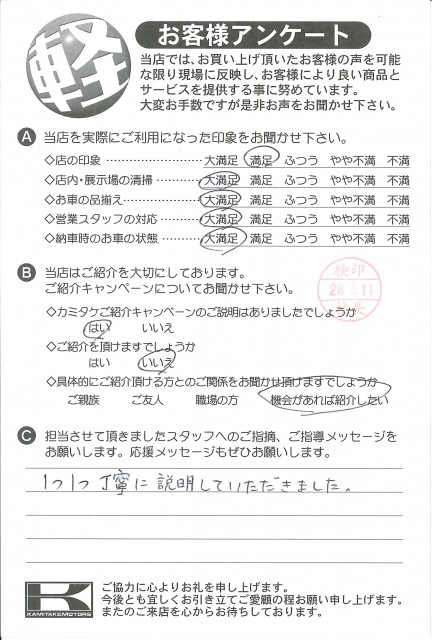 軽
お客様アンケート
当店では、お買い上げ頂いたお客様の声を可能
な限り現場に反映し、お客様により良い商品と
サービスを提供する事に努めています。
大変お手数ですが是非お声をお聞かせ下さい。
A 当店を実際にご利用になった印象をお聞かせ下さい。
◇店の印象 ………………… 大満足 満足 ふつう やや不満 不満
◇店内・展示場の清掃………… 大満足 満足 ふつう やや不満 不満
◇お車の品揃え………………… 大満足 満足 ふつう やや不満 不満
◇営業スタッフの対応………… 大満足 満足 ふつう やや不満 不満
◇納車時のお車の状態………… 大満足 満足 ふつう やや不満 不満
B 当店はご紹介を大切にしております。
ご紹介キャンペーンについてお聞かせ下さい。
検印
28.3.11
社長
◇カミタケご紹介キャンペーンのご説明はありましたでしょうか
はい いいえ
◇ご紹介を頂けますでしょうか
はい いいえ
◇具体的にご紹介頂ける方とのご関係をお聞かせ頂けますでしょうか
ご親族 ご友人 職場の方 機会があれば紹介したい
C 担当させて頂きましたスタッフへのご指摘、ご指導メッセージを
お願いします。応援メッセージもぜひお願いします。
1つ1つ丁寧に説明していただきました。
K
KAMITAKE MOTORS
ご協力に心よりお礼を申し上げます。
今後とも宜しくお引き立てご愛顧の程お願い申し上げます。
またのご来店を心からお待ちしております。